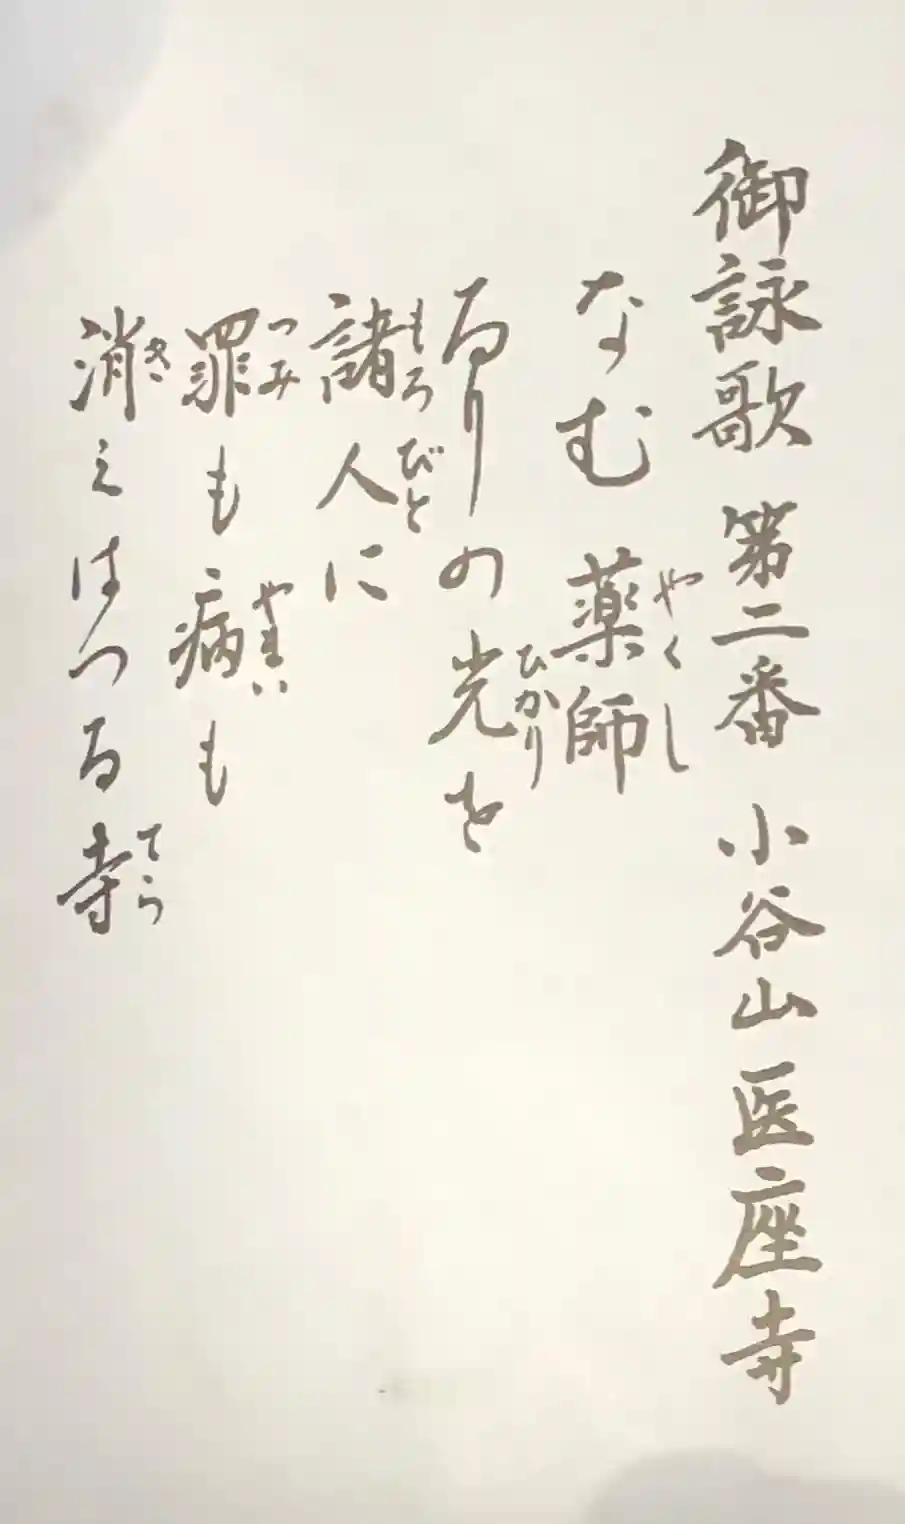 御詠歌 第二番 小谷山医座寺
なむ薬師
やくし
るりの光を
ひかり
諸人に
もろびと
罪も病も
つみ
やまい
消えはつる寺
き
てら